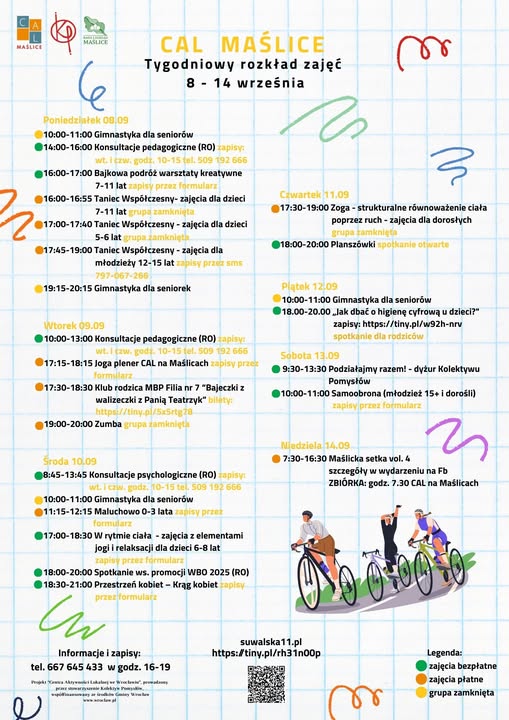 CAL
MAŚLICE
MAŚLICE
CAL MAŚLICE
Tygodniowy rozkład zajęć
8 - 14 września
Poniedziałek 08.09
10:00-11:00 Gimnastyka dla seniorów
14:00-16:00 Konsultacje pedagogiczne (RO) zapisy:
wt. i czw. godz. 10-15 tel. 509 192 666
16:00-17:00 Bajkowa podróż warsztaty kreatywne
7-11 lat zapisy przez formularz
16:00-16:55 Taniec Współczesny- zajęcia dla dzieci
7-11 lat grupa zamknięta
17:00-17:40 Taniec Współczesny - zajęcia dla dzieci
5-6 lat grupa zamknięta
17:45-19:00 Taniec Współczesny - zajęcia dla
młodzieży 12-15 lat zapisy przez sms
797-067-266
19:15-20:15 Gimnastyka dla seniorek
Wtorek 09.09
10:00-13:00 Konsultacje pedagogiczne (RO) zapisy:
wt. i czw. godz. 10-15 tel. 509 192 666
17:15-18:15 Joga plener CAL na Maślicach zapisy przez
formularz
17:30-18:30 Klub rodzica MBP Filia nr 7 "Bajeczki z
walizeczki z Panią Teatrzyk" bilety:
https://tiny.pl/5x5rtg78
19:00-20:00 Zumba grupa zamknięta
Środa 10.09
8:45-13:45 Konsultacje psychologiczne (RO) zapisy:
wt. i czw. godz. 10-15 tel. 509 192 666
10:00-11:00 Gimnastyka dla seniorów
11:15-12:15 Maluchowo 0-3 lata zapisy przez
formularz
17:00-18:30 W rytmie ciała - zajęcia z elementami
jogi i relaksacji dla dzieci 6-8 lat
zapisy przez formularz
18:00-20:00 Spotkanie ws. promocji WBO 2025 (RO)
18:30-21:00 Przestrzeń kobiet – Krąg kobiet zapisy
przez formularz
Czwartek 11.09
17:30-19:00 Zoga - strukturalne równoważenie ciała
poprzez ruch - zajęcia dla dorosłych
grupa zamknięta
18:00-20:00 Planszówki spotkanie otwarte
Piątek 12.09
10:00-11:00 Gimnastyka dla seniorów
18.00-20.00 „Jak dbać o higienę cyfrową u dzieci?”
zapisy: https://tiny.pl/w92h-nrv
spotkanie dla rodziców
Sobota 13.09
9:30-13:30 Podziałajmy razem! - dyżur Kolektywu
Pomysłów
10:00-11:00 Samoobrona (młodzież 15+ i dorośli)
zapisy przez formularz
Niedziela 14.09
7:30-16:30 Maślicka setka vol. 4
szczegóły w wydarzeniu na Fb
ZBIÓRKA: godz. 7.30 CAL na Maślicach
Informacje i zapisy:
tel. 667 645 433 w godz. 16-19
Projekt "Centra Aktywności Lokalnej we Wrocławiu", prowadzony
przez stowarzyszenie Kolektyw Pomysłów,
współfinansowany ze środków Gminy Wrocław
www.wroclaw.pl
suwalska11.pl
https://tiny.pl/rh31n00p
Legenda:
zajęcia bezpłatne
zajęcia płatne
grupa zamknięta